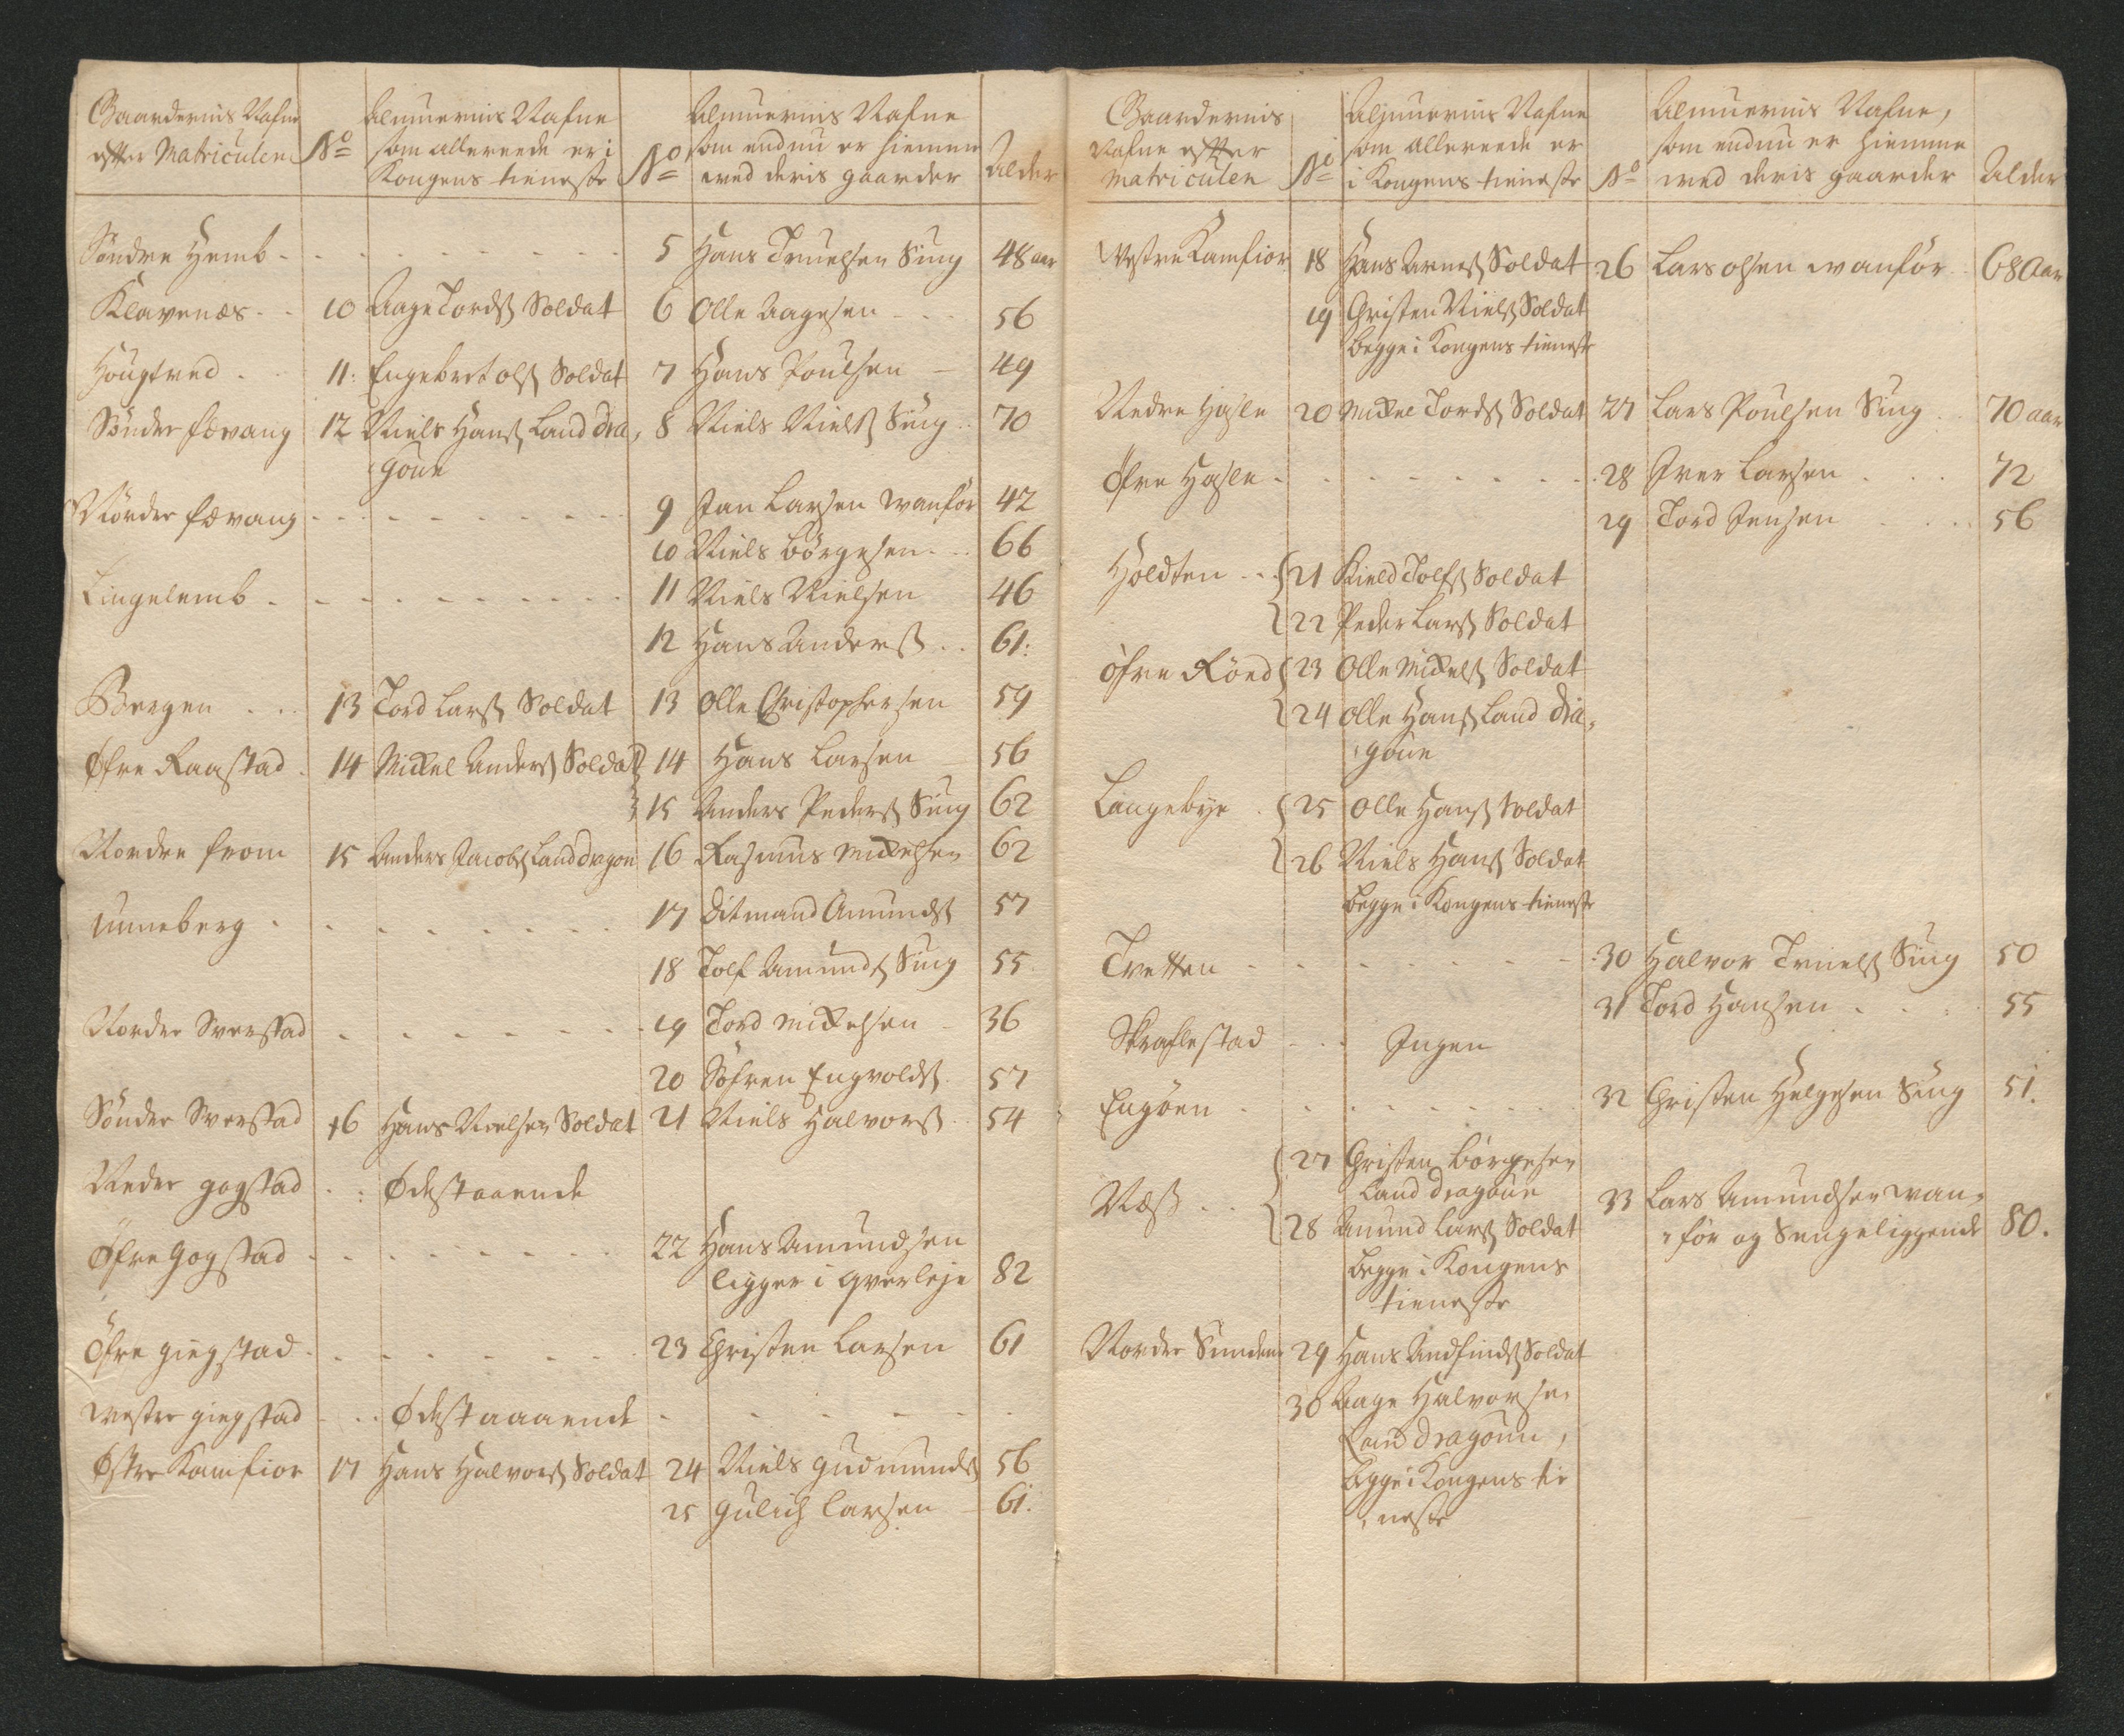 Gaardernis Nafne
efter Matriculen
No
Almuernis Nafne
som allereede er i
Kongens tieneste
No
Almuernis Nafne
som endnu er hiemme
wed deris gaarder
Alder
Søndre Hemb - - - - - - - - 5 Hans Truelsen Siug 48 aar
Klavenæs - - 10 Aage Tordß Soldat 6 Olle Aagesen - - - 56
Hougtved - 11: Engebret olß Soldat 7 Hans Poulsen - 49
Sønder fævang 12 Niels Hanß Land dra, 8 Niels Nielß Siug .. 70
goun
Nørder fævang - - - - - - - 9 Jan Larsen wanför 42
10 Niels Börgesen - .. 66
Lingelemb - - - - - - - - 11 Niels Nielsen 46
12 Hans Anderß .. 61:
Bergen . .. 13 Tord Larß Soldat 13 Olle Christophersen 59
Øfre Raastad . 14 Mickel Anderß Soldat 14 Hans Larsen 56
15 Anders Pederß Siug 62
Nordre from 15 Anders Jacobß Land dragon 16 Rasmus Mickelsen 62
Unneberg - - - - - - - - 17 Ditmand Amundß 57
18 Tolf Amundß Siug 55
Norder Sverstad - - - - - - - 19 Tord Mickelsen - 36
20 Söfren Engvoldß. 57
Sønder Sverstad 16 Hans Nielsen Soldat 21 Niels Halvorß .. 54
Neder gogstad . : Ødestaaende
Øfre Gogstad - - - - - - - - 22 Hans Amundsen
ligger i qverleje 82
Öfre giegstad - - - - - - - 23 Christen Larsen 61
westre giegstad - . . Ødestaaaende - - - - - -
Østre Kamfior 17 Hans Halvorß Soldat 24 Niels Gudmundß 56
25 Gulich Larsen - 61.
Gaardernis
Nafne efter
Matriculen
No
Almuernis Nafne
som allereede er
i Kongens tieneste
No
Almuernis Nafne,
som endnu er hiemme
wed deris gaarder
Alder
Westre Kamfior 18 Hans Arneß Soldat 26 Lars olsen wanför 68 Aar
19 Christen Nielß Soldat
begge i Kongens tieneste
Nedre Hasle 20 Mickel Tordß Soldat 27 Lars Poulsen Siug . 70 aar
Øfre Hasle - - - - - - - - 28 Iver Larsen . . . 72
29 Tord Jensen . . . 56
Holdten - - 21 Kield Tolfß Soldat
22 Peder Larß Soldat
öfre Röed 23 Olle Mickelß Soldat
24 Olle Hanß Land dra,
goun
Langebye . 25 Olle Hanß Soldat
26 Niels Hanß Soldat
begge i Kongens tieneste
Tvetten - - - - - - - - 30 Halvor Truelß Siug 50
31 Tord Hansen . . . 55
Skraflestad - - - Ingen
Engöen - - - - - - - - 32 Christen Helgesen Siug 51.
27 Christen Börgesen
Land dragoun
Næß . . 33 Lars Amundsen wan,
28 Amund Larß Soldat
för og Sengeliggende 80.
begge i Kongens
tieneste
Norder Sunden 29 Hans Andfindß Soldat
30 Aage Halvorsen
Land dragoun,
begge i Kongens tie
neste